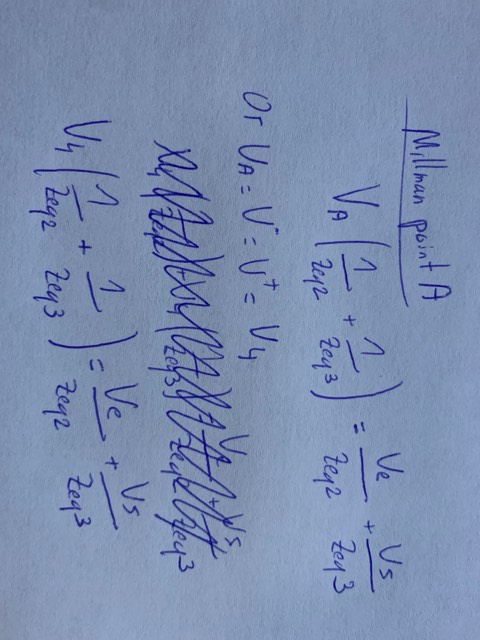 Millman point A
VA (1/Zeq2 + 1/Zeq3) = Ve/Zeq2 + Vs/Zeq3
Or VA = V⁻ = V⁺ = V4
V4 (1/Zeq2 + 1/Zeq3) = Ve/Zeq2 + Vs/Zeq3